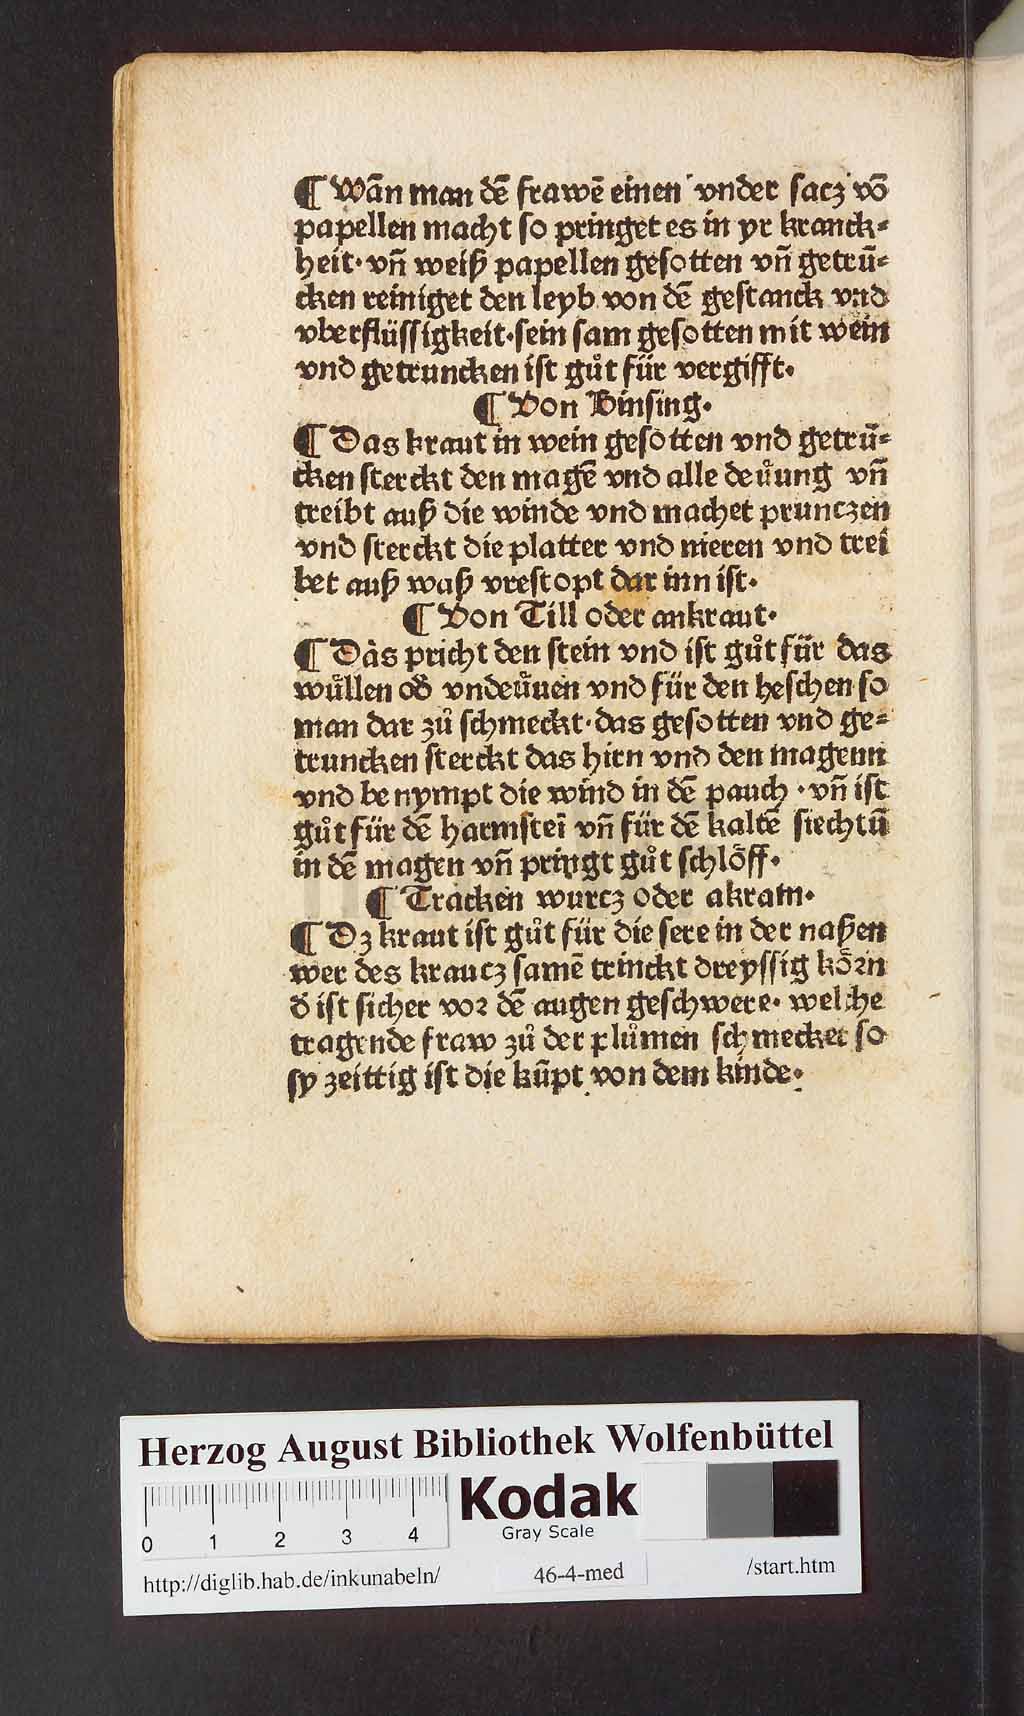 ¶ Wān man dē frawē einen vnder sacz vō
papellen macht so pringet es in yr kranck⸗
heit· vn̄ weiß papellen gesotten vn̄ getrū⸗
cken reiniget den leyb von dē gestanck vnd
vberflüssigkeit·sein sam gesotten mit wein
vnd getruncken ist gůt für vergifft·
¶ Von Binsing·
¶ Das kraut in wein gesotten vnd getrū⸗
cken sterckt den magē vnd alle deůung vn̄
treibt auß die winde vnd machet prunczen
vnd sterckt die platter vnd nieren vnd trei
bet auß waß vrestopt dar inn ist·
¶ Von Till oder ankraut·
¶ Das pricht den stein vnd ist gůt für das
wůllen od̄ vndeůuen vnd für den heschen so
man dar zů schmeckt·das gesotten vnd ge⸗
truncken sterckt das hirn vnd den magenn
vnd be nympt die wind in dē pauch · vn̄ ist
gůt für dē harmstei vn̄ für dē kaltē siechtū
in dē magen vn̄ pringt gůt schlöff·
¶ Tracken wurcz oder akram·
¶ Dz kraut ist gůt für die sere in der naßen
wer des kraucz samē trinckt dreyssig körn
d̄ ist sicher vor dē augen geschwere· welche
tragende fraw zů der plůmen schmecket so
sy zeittig ist die kūpt von dem kinde·
Herzog August Bibliothek Wolfenbüttel
0 1 2 3 4
Kodak
Gray Scale
http://diglib.hab.de/inkunabeln/ 46-4-med /start.htm